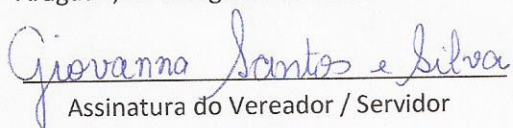 Giovanna Santos e Silva
Assinatura do Vereador / Servidor